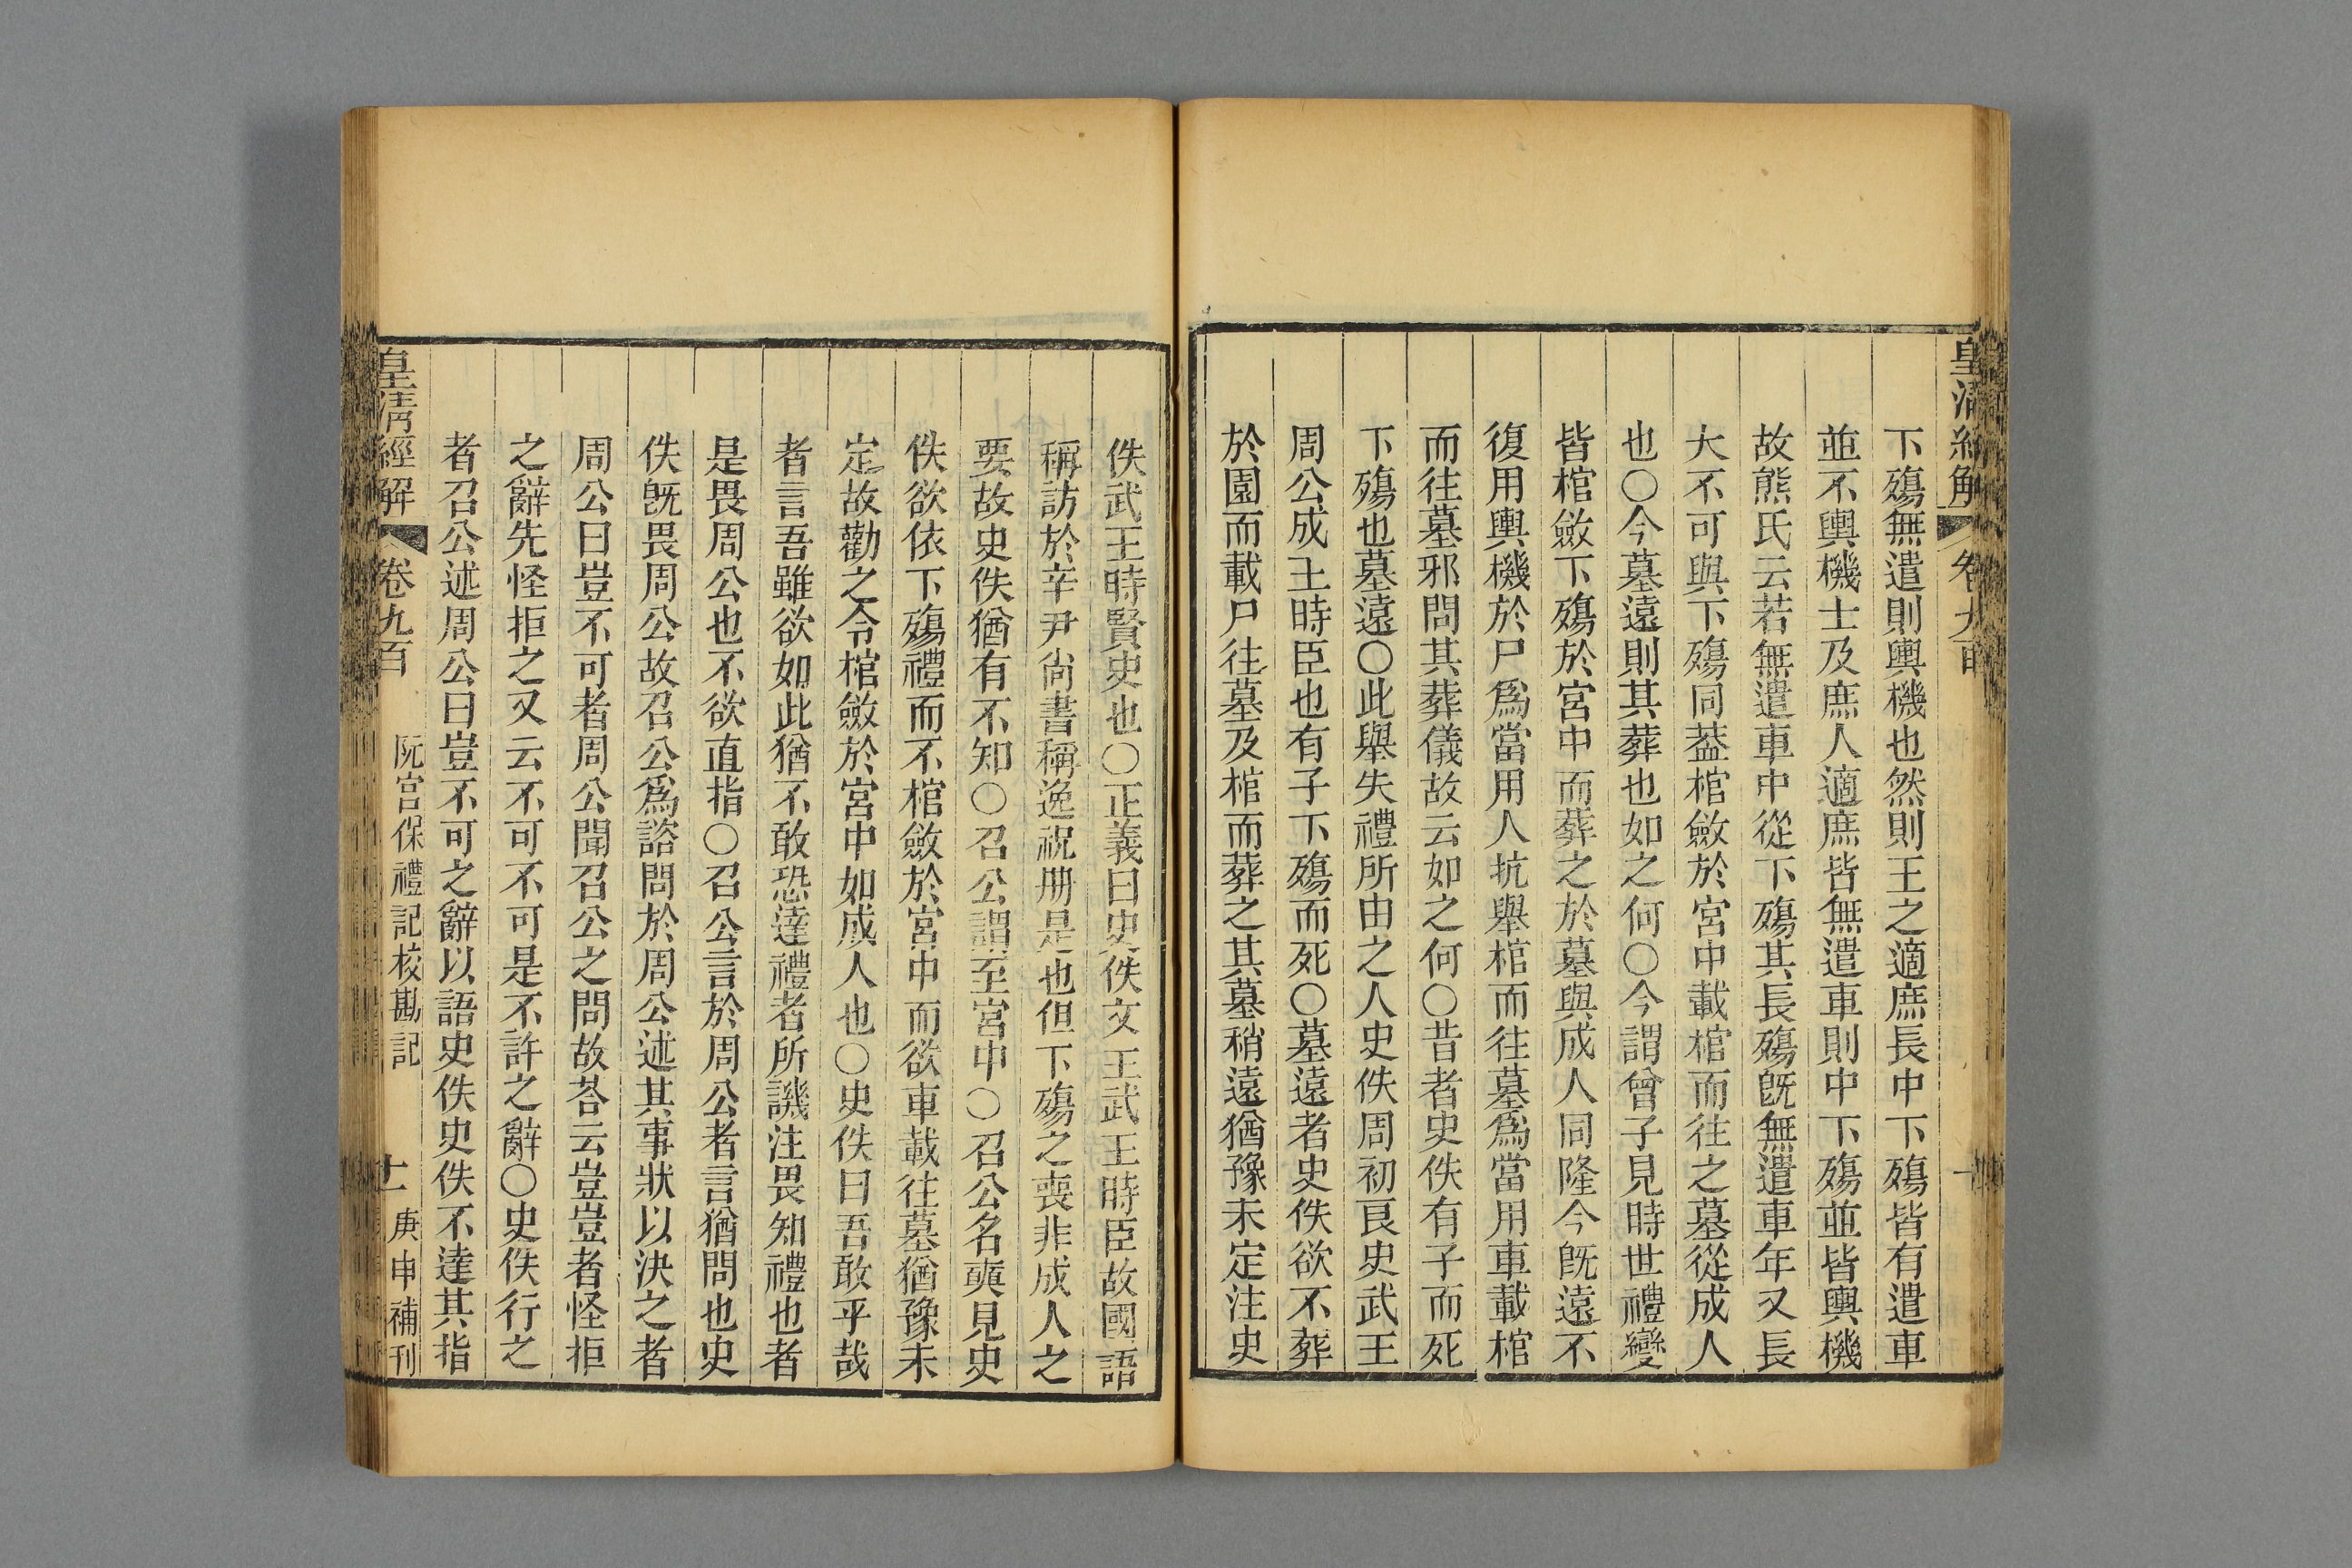 下殤無遣則輿機也然則王之適庶長中下殤皆有遣車
並不輿機士及庶人適庶皆無遣車則中下殤並皆輿機
故熊氏云若無遣車中從下殤其長殤旣無遣車年又長
大不可與下殤同葢棺斂於宮中載棺而往之墓從成人
也○今墓遠則其葬也如之何○今謂曾子見時世禮變
皆棺斂下殤於宮中而葬之於墓與成人同隆今旣遠不
復用輿機於尸爲當用人抗舉棺而往墓爲當用車載棺
而往墓邪問其葬儀故云如之何○昔者史佚有子而死
下殤也墓遠○此舉失禮所由之人史佚周初良史武王
周公成王時臣也有子下殤而死○墓遠者史佚欲不葬
於園而載尸往墓及棺而葬之其墓稍遠猶豫未定注史
佚武王時賢史也○正義曰史佚文王武王時臣故國語
稱訪於辛尹尙書稱逸祝册是也但下殤之喪非成人之
要故史佚猶有不知○召公謂至宮中○召公名奭見史
佚欲依下殤禮而不棺斂於宮中而欲車載往墓猶豫未
定故勸之令棺斂於宮中如成人也○史佚曰吾敢乎哉
者言吾雖欲如此猶不敢恐違禮者所譏注畏知禮也者
是畏周公也不欲直指○召公言於周公者言猶問也史
佚旣畏周公故召公爲諮問於周公述其事狀以決之者
周公曰豈不可者周公聞召公之問故荅云豈豈者怪拒
之辭先怪拒之又云不可不可是不許之辭○史佚行之
者召公述周公曰豈不可之辭以語史佚史佚不達其指
皇淸經解 卷九百 阮宮保禮記校勘記 十一 庚申補刊